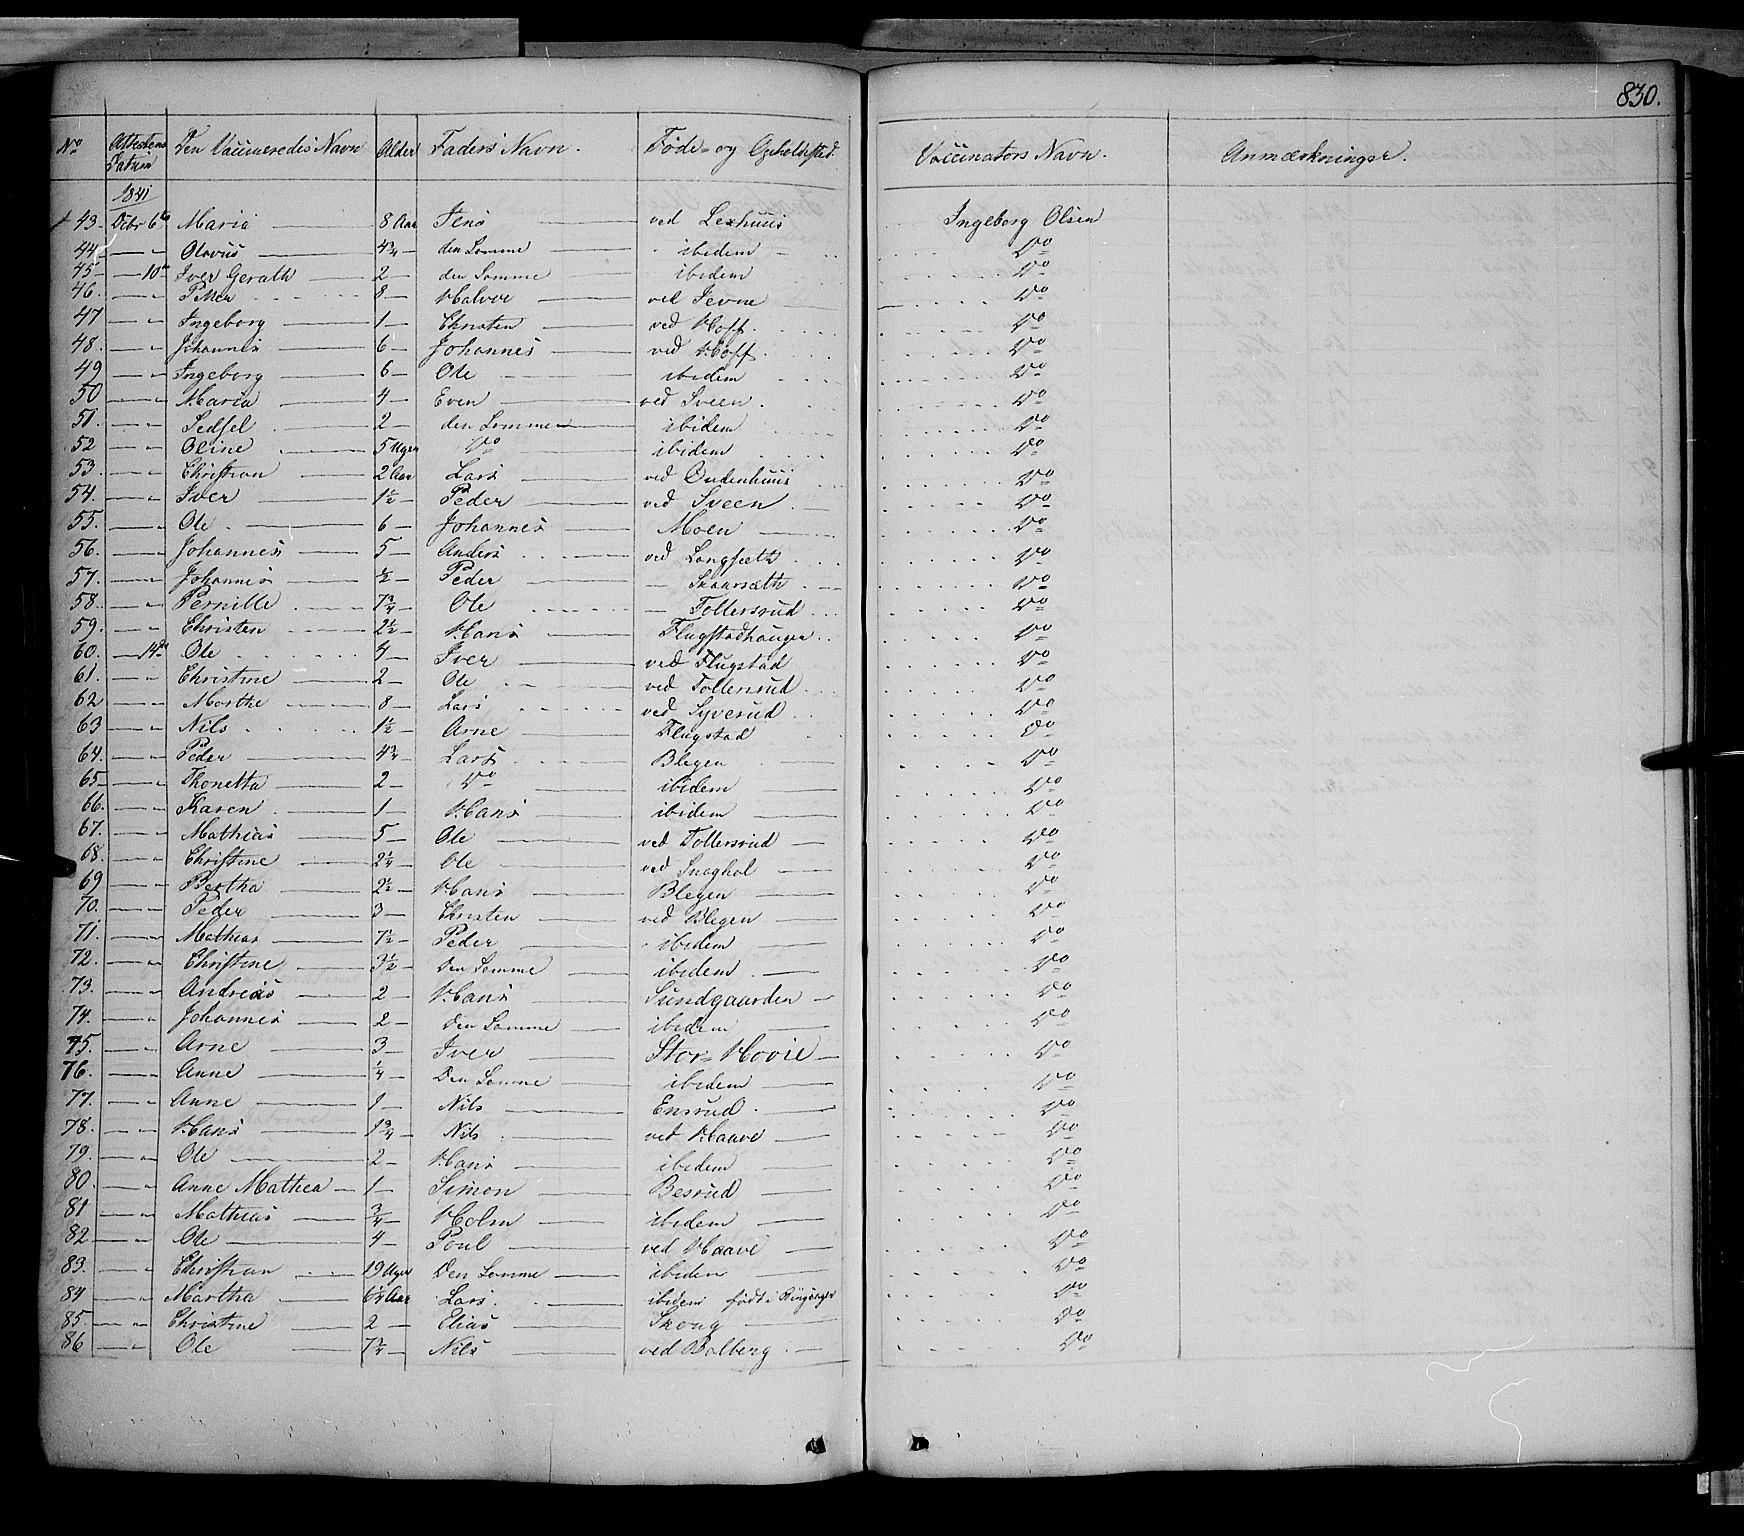 830.
No Attestens Datum Den Vaccineredes Navn Alder Faders Navn. Føde- og Opholdssted. Vaccinators Navn. Anmærkninger.
1841
43. Dcbr 6te Maria 8 Aar Jens ved Lexhuus Ingeborg Olsen
44 — " Olavus 4¾ den Samme ibidem Do
45 — 10de Iver Gerath 2 den Samme ibidem Do
46. — " Petter 8 — Halvor ved Jevne Do
47 — " Ingeborg 1 — Christen ved Hoff. Do
48. — " Johannes 6 — Johannes ved Hoff. Do
49 — " Ingeborg 6 — Ole ibidem Do
50 — " Maria 4 — Even ved Sveen. Do
51. — " Sedsel 2 — den Samme ibidem Do
52 — " Oline 5 Uger Do ibidem Do
53. — " Christian 2 Aar Lars ved Oudenhuus Do
54. — " Iver 1½ — Peder ved Sveen Do
55. — " Ole 6 — Johannes Moen Do
56. — " Johannes 5 — Anders ved Langsæth Do
57. — " Johannes ½ — Peder — Skaarsæth Do
58. — " Pernille 7¾ Ole — Tollersrud Do
59. — " Christen 2½ Hans Flugstadhaugen Do
60. — 14de Ole 4 — Iver ved Flugstad Do
61. — " Christine 2 — Ole ved Tollersrud Do
62 — " Marthe 8 — Lars ved Syverud Do
63 — " Nils 1½ — Arne Flugstad Do
64. — " Peder 4¾ Lars Blegen Do
65 — " Thonetta 2 — Do ibidem Do
66. — " Karen 1 — Hans ibidem Do
67. — " Mathias 5 — Ole ved Tollersrud Do
68. — " Christine 2¼ — Ole ved Snaghol Do
69 — " Bertha 2½ — Hans Blegen Do
70. — " Peder 3 — Christen ved Blegen Do
71. — " Mathias 7½ — Peder ibidem Do
72. — " Christine 3½ Den Samme ibidem. Do
73. — " Andreas 2 — Hans Sundgaarden Do
74. — " Johannes 2 — Den Samme ibidem Do
75. — " Arne 3 — Iver Stor-Hovie Do
76. — " Anne ¼ — Den Samme ibidem Do
77. — " Anne 1 — Nils Ensrud. Do
78. — " Hans 1¾ — Nils ved Haave Do
79. — " Ole 2 — Hans ibidem Do
80. — " Anne Mathea — 1 — Simon Besrud Do
81 — " Mathias ¾ — Holm ibidem Do
82 — " Ole 4 — Poul ved Haave Do
83. — " Christian 19 Uger Den Samme ibidem Do
84 — " Martha 6¼ Aar Lars ibidem født i Ringsager Do
85 — " Christine 2 — Elias Skoug Do
86 — " Ole 7¾ — Nils ved Balberg. Do